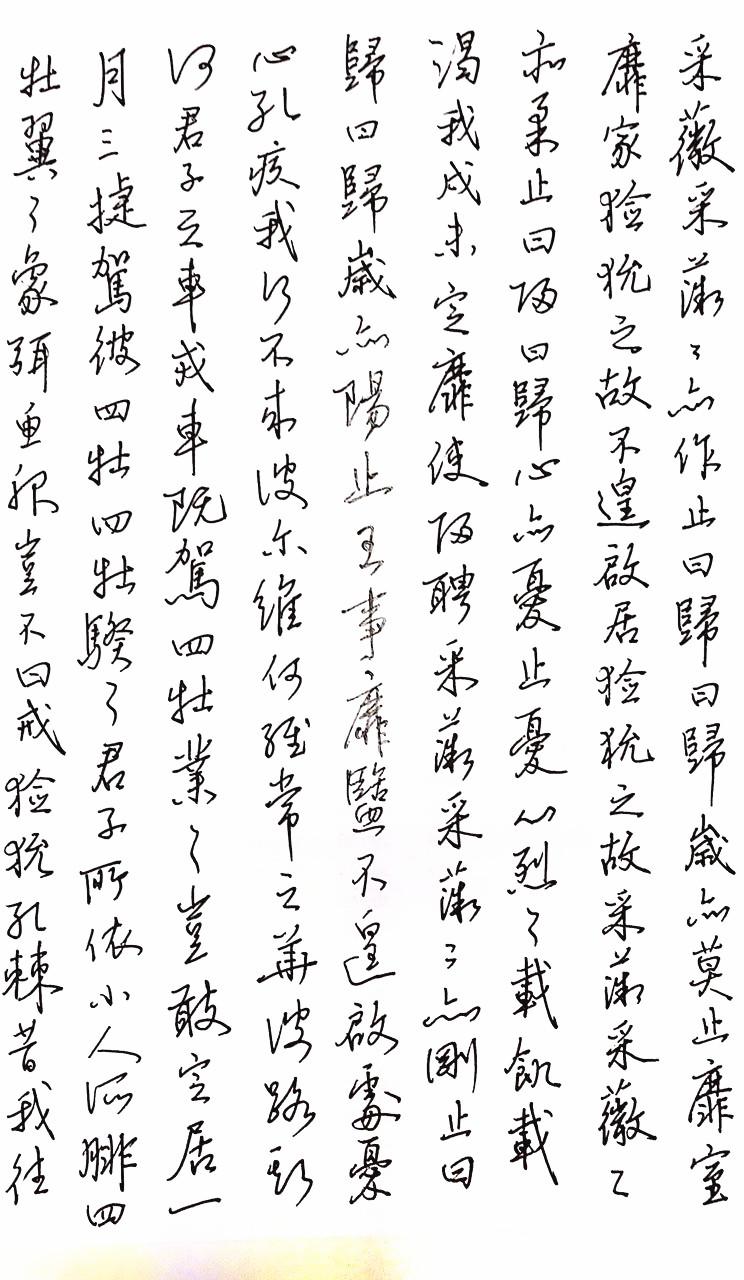 采薇采薇〻亦作止曰歸曰歸歲亦莫止靡室
靡家玁狁之故不遑啟居玁狁之故采薇采薇〻
亦柔止曰歸曰歸心亦憂止憂心烈〻載飢載
渴我戍未定靡使歸聘采薇采薇〻亦剛止曰
歸曰歸歲亦陽止王事靡盬不遑啟處憂
心孔疚我行不來彼尔維何維常之華彼路斯
何君子之車戎車既駕四牡業〻豈敢定居一
月三捷駕彼四牡四牡騤〻君子所依小人所腓四
牡翼〻象弭魚服豈不曰戒玁狁孔棘昔我往